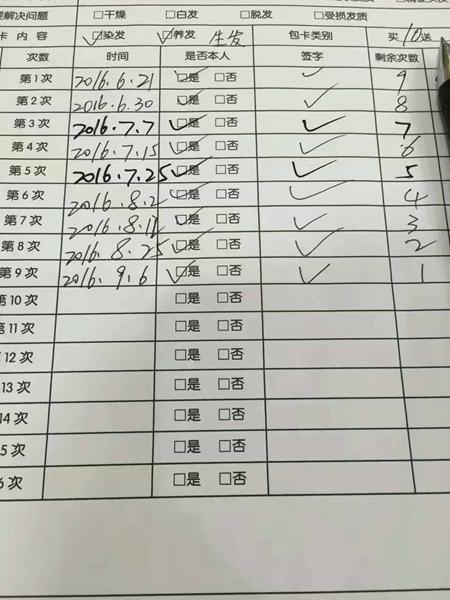 解决问题 □干燥 □白发 □脱发 □受损发质
卡 内 容 ☑染发 ☑养发 生发 包卡类别 买10送
次数 时间 是否本人 签字 剩余次数
第1次 2016.6.21 ☑是 □否 ✓ 9
第2次 2016.6.30 ☑是 □否 ✓ 8
第3次 2016.7.7 ☑是 □否 ✓ 7
第4次 2016.7.15 ☑是 □否 ✓ 6
第5次 2016.7.25 ☑是 □否 ✓ 5
第6次 2016.8.2 ☑是 □否 ✓ 4
第7次 2016.8.11 ☑是 □否 ✓ 3
第8次 2016.8.25 ☑是 □否 ✓ 2
第9次 2016.9.6 ☑是 □否 ✓ 1
第10次 □是 □否
第11次 □是 □否
第12次 □是 □否
13次 □是 □否
14次 □是 □否
5次 □是 □否
6次 □是 □否